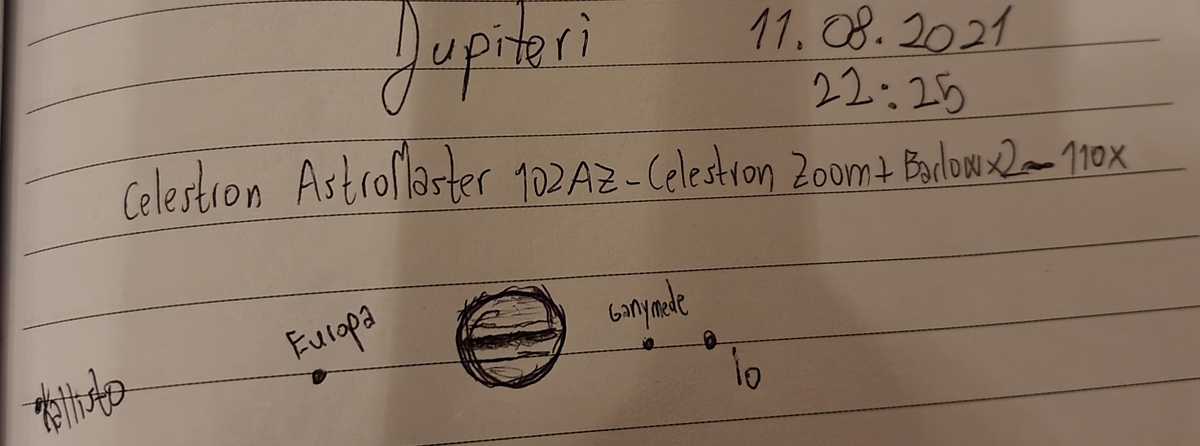 Jupiteri 11.08.2021
22:25
Celestron AstroMaster 102AZ - Celestron Zoom + Barlow x2 ~ 110x
Ganymede
Europa
Kallisto
Io